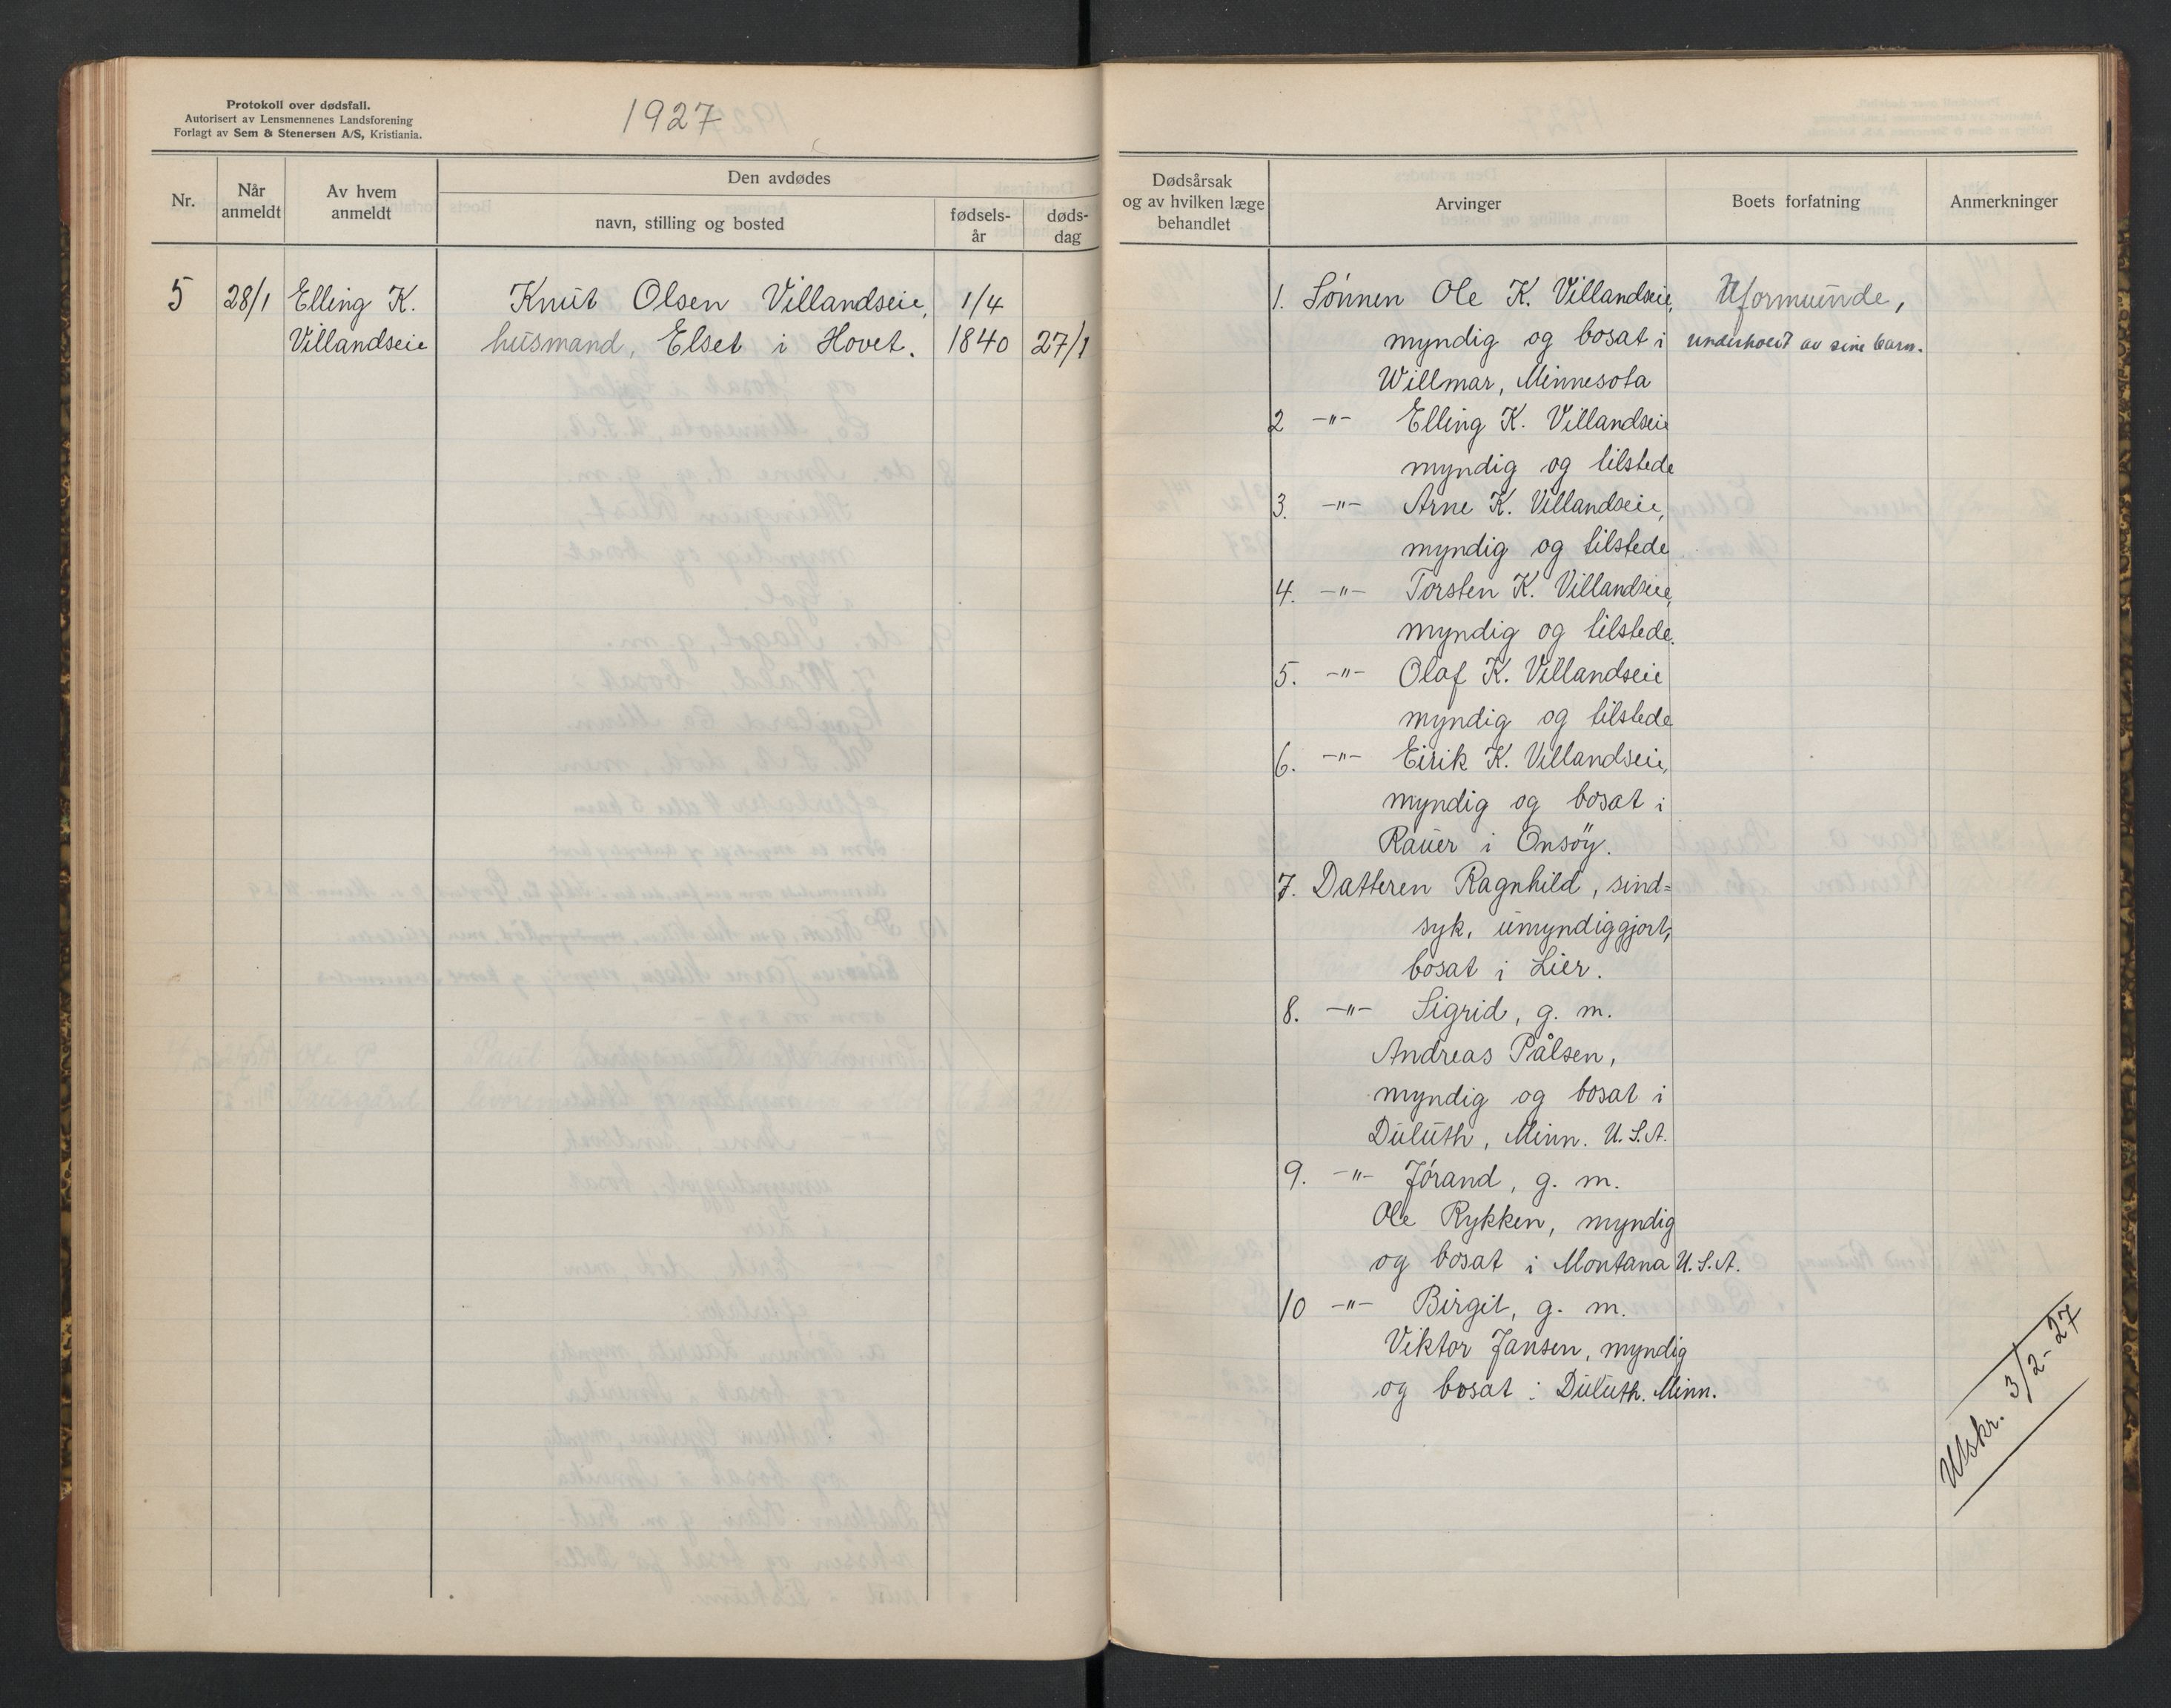 Protokoll over dødsfall.
Autorisert av Lensmennenes Landsforening
Forlagt av Sem & Stenersen A/S, Kristiania.
1927
Nr.
Når anmeldt
Av hvem anmeldt
Den avdødes
navn, stilling og bosted
fødsels-år
døds-dag
Dødsårsak og av hvilken læge behandlet
Arvinger
Boets forfatning
Anmerkninger
5 28/1 Elling K. Knut Olsen Villandseie, 1/4
Villandseie husmand, Elset i Hovet. 1840 27/1
1. Sønnen Ole K. Villandseie, Uformuende,
myndig og bosat i underholdt av sine barn.
Willmar, Minnesota
2 -"- Elling K. Villandseie
myndig og tilstede
3. -"- Arne K. Villandseie,
myndig og tilstede
4. -"- Torsten K. Villandseie,
myndig og tilstede.
5. -"- Olaf K. Villandseie
myndig og tilstede
6. -"- Eirik K. Villandseie,
myndig og bosat i
Rauer i Onsöy.
7. Datteren Ragnhild, sind=
syk, umyndiggjort,
bosat i Lier.
8. -"- Sigrid, g. m.
Andreas Pålsen,
myndig og bosat i
Duluth, Minn. U.S.A.
9. -"- Jórand, g. m.
Ole Rykken, myndig
og bosat i Montana U.S.A.
10 -"- Birgit, g. m.
Viktor Jansen, myndig
og bosat i Duluth. Minn.
Utskr. 3/2-27